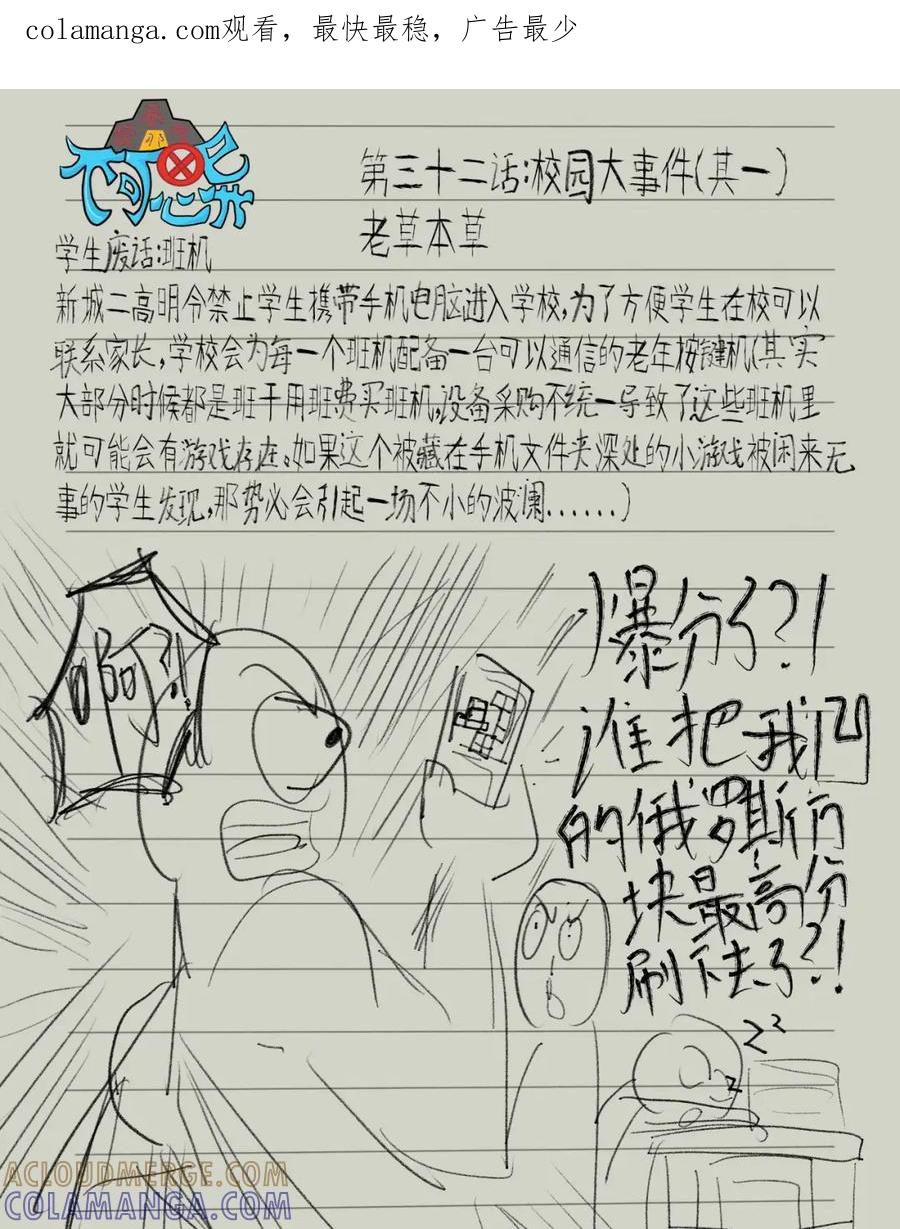 colamanga.com观看，最快最稳，广告最少
第三十二话:校园大事件(其一)
老草本草
学生废话:班机
新城二高明令禁止学生携带手机电脑进入学校,为了方便学生在校可以
联系家长,学校会为每一个班机配备一台可以通信的老年按键机(其实
大部分时候都是班干用班费买班机,设备采购不统一导致了这些班机里
就可能会有游戏存在。如果这个被藏在手机文件夹深处的小游戏被闲来无
事的学生发现,那势必会引起一场不小的波澜......)
啊?!
爆分了?!
谁把我
的俄罗斯方
块最高分
刷下去了?!
zz
z
ACLOUDMERGE.COM
COLAMANGA.COM